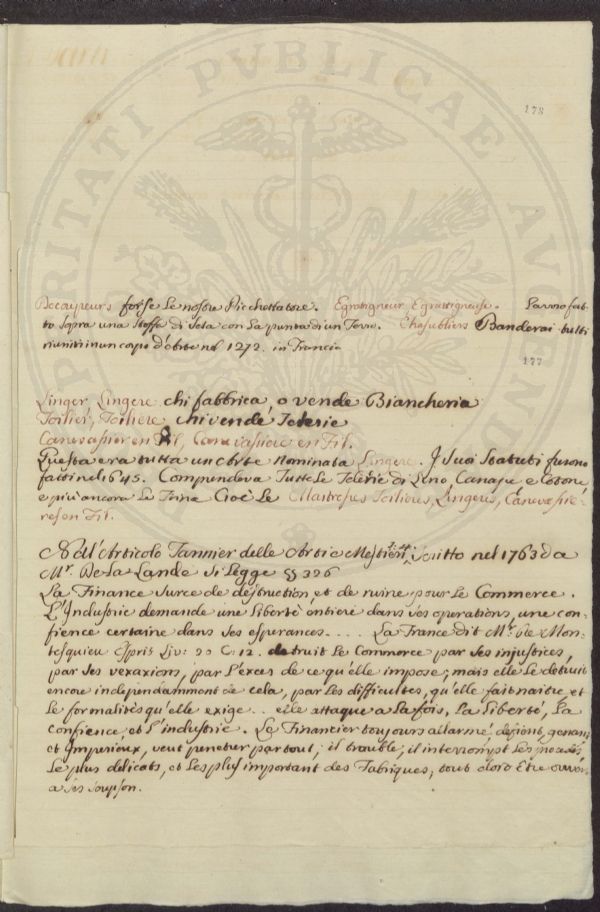 PVBLICAE
178
Decoupeurs forse le nostre Picchettatore. Egratigneur Egrattigneuse. Lavoro fat-
to sopra una stoffa di seta con la punta di un Ferro. Chasubliers Banderai tutti
riuniti in un corpo d'Arte nel 1272. in Francia
177
Linger Lingere chi fabbrica, o vende Biancheria
Toilier, Toiliere chi vende Telerie
Canevassier en Fil, Canevassiere en Fil.
Questa era tutta un Arte Nominata Lingere. I suoi Statuti furono
fatti nel 1645. Comprendeva Tutte le Telerie di Lino, Canapa, e Cotone
e più ancora le Trine Cioè le Maitresses Toilieres, Lingeres, Canevassie-
res en Fil.
Nell'Articolo Tannier delle Arti e Mestieri, Scritto nel 1763 da
Mr. De la Lande si legge §§ 326
La Finance surce de destruction et de ruine pour le Commerce.
L'Industrie demande une liberté entiere dans ses operations, une con-
fience certaine dans ses esperances. . . . La France dit Mr. de Mon-
tesquieu Esprit Liv: 20 C: 12. detruit le Commerce par ses injustices,
par ses vexaxions, par l'exces de ce qu'elle impose; mais elle le detruit
encore independamment de cela, par les difficultes, qu'elle fait naitre, et
le formalités qu'elle exige .. elle attaque a la fois, la liberté, la
confience, et l'industrie. Le Financier toujours allarmé, desiont, genant
et Imperieux, veut penetrer par tout, il trouble, il interrompt les
le plus delicats, et les plus important des Fabriques; tout dord Etre ouvert
a ses soupson.